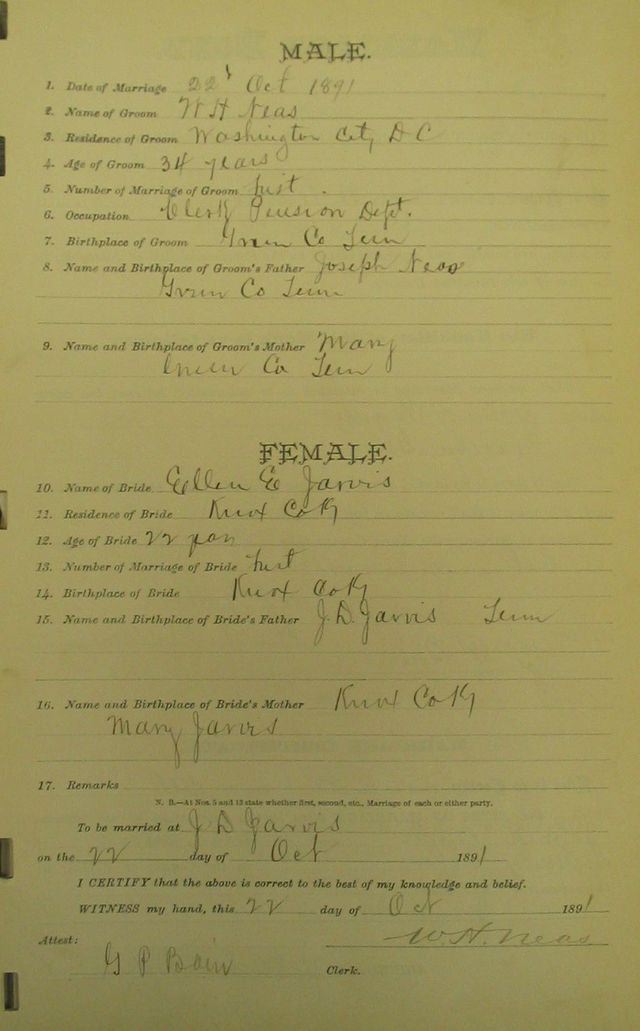 MALE.
1. Date of Marriage 22 Oct 1891
2. Name of Groom W H Neas
3. Residence of Groom Washington City D C
4. Age of Groom 34 years
5. Number of Marriage of Groom first.
6. Occupation Clerk Pension Dept.
7. Birthplace of Groom Green Co Tenn
8. Name and Birthplace of Groom's Father Joseph Neas
Green Co Tenn
9. Name and Birthplace of Groom's Mother Mary
Green Co Tenn
FEMALE.
10. Name of Bride Ellen E Jarvis
11. Residence of Bride Knox Co Ky
12. Age of Bride 22 years
13. Number of Marriage of Bride first
14. Birthplace of Bride Knox Co Ky
15. Name and Birthplace of Bride's Father J. D. Jarvis Tenn
16. Name and Birthplace of Bride's Mother Knox Co Ky
Mary Jarvis
17. Remarks
N. B.—At Nos. 5 and 13 state whether first, second, etc., Marriage of each or either party.
To be married at J D Jarvis
on the 22 day of Oct 1891
I CERTIFY that the above is correct to the best of my knowledge and belief.
WITNESS my hand, this 22 day of Oct 1891
W. H. Neas
Attest:
G P Bain Clerk.